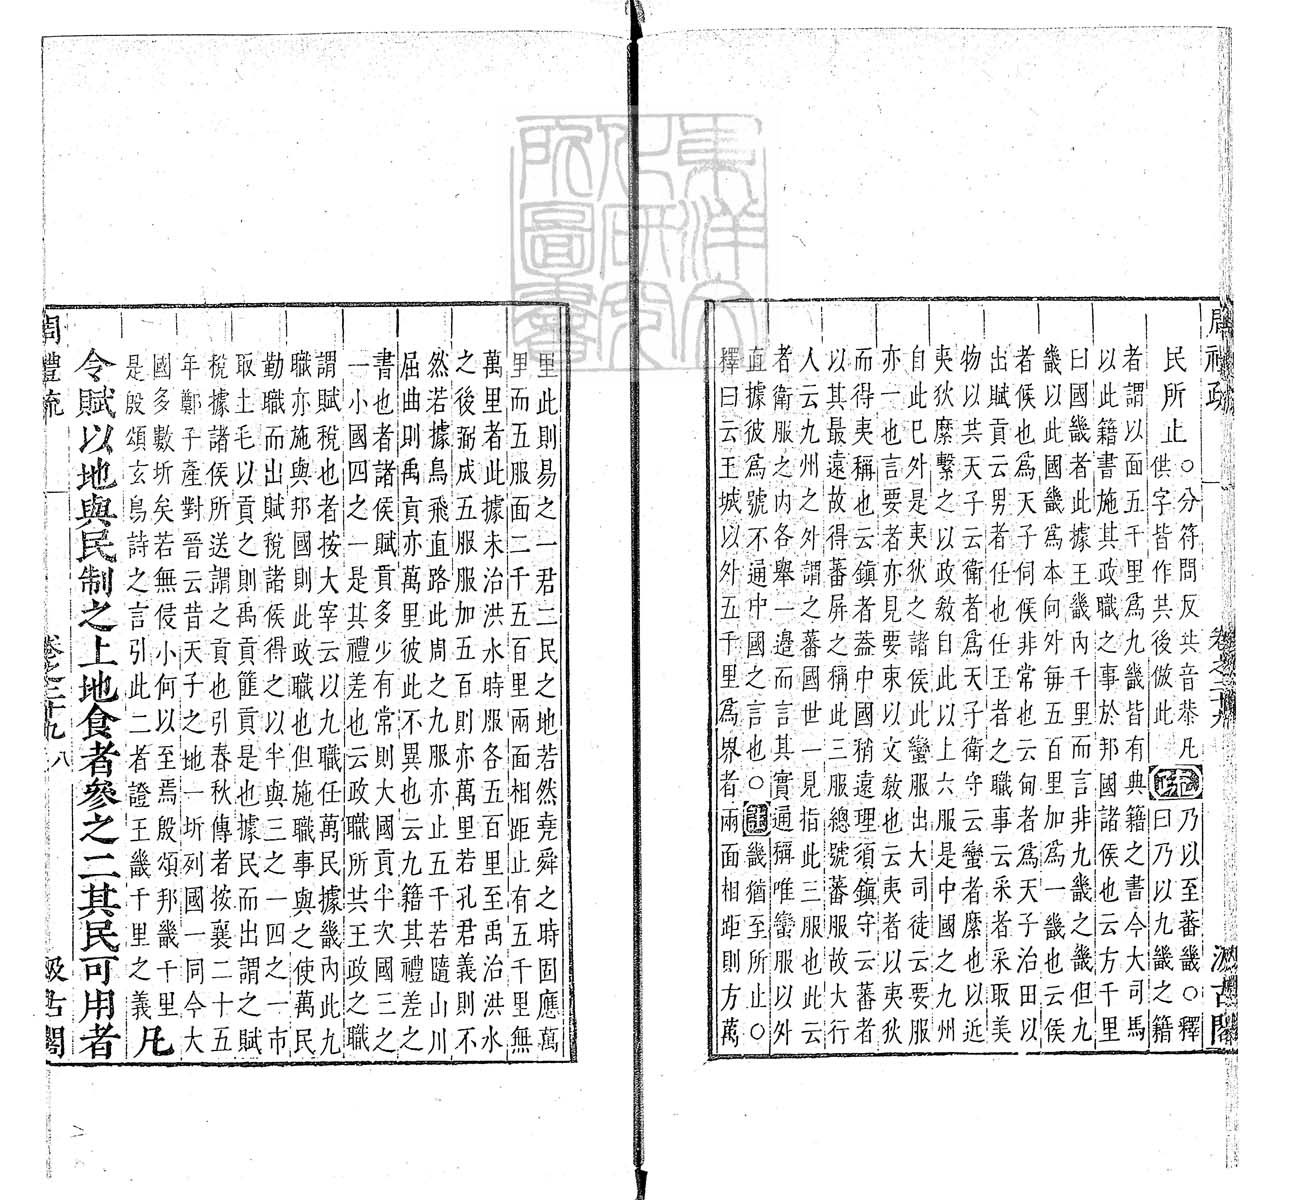 周禮疏 卷之二十九 汲古閣
民所止
○分符問反共音恭凡
供字皆作共後倣此
疏
乃以至蕃畿○釋
曰乃以九畿之籍
者謂以面五千里爲九畿皆有典籍之書今大司馬
以此籍書施其政職之事於邦國諸侯也云方千里
曰國畿者此據王畿內千里而言非九畿之畿但九
畿以此國畿爲本向外每五百里加爲一畿也云侯
者候也爲天子伺候非常也云甸者爲天子治田以
出賦貢云男者任也任王者之職事云采者采取美
物以共天子云衛者爲天子衛守云蠻者縻也以近
夷狄縻繫之以政敎自此以上六服是中國之九州
自此已外是夷狄之諸侯此蠻服出大司徒云要服
亦一也言要者亦見要束以文敎也云夷者以夷狄
而得夷稱也云鎮者葢中國稍遠理須鎮守云蕃者
以其最遠故得蕃屏之稱此三服總號蕃服故大行
人云九州之外謂之蕃國世一見指此三服也此云
者衛服之內各舉一邊而言其實通稱唯蠻服以外
直據彼爲號不通中國之言也○注畿猶至所止○
釋曰云王城以外五千里爲界者兩面相距則方萬
里此則易之一君二民之地若然堯舜之時固應萬
里而五服面二千五百里兩面相距止有五千里無
萬里者此據未治洪水時服各五百里至禹治洪水
之後弼成五服服加五百則亦萬里若孔君義則不
然若據鳥飛直路此周之九服亦止五千若隨山川
屈曲則禹貢亦萬里彼此不異也云九籍其禮差之
書也者諸侯賦貢多少有常則大國貢半次國三之
一小國四之一是其禮差也云政職所共王政之職
謂賦稅也者按大宰以九職任萬民據畿內此九
職亦施與邦國則此政職也但施職事與之使萬民
勤職而出賦稅諸侯得之以半與三之一四之一市
取土毛以貢之則禹貢篚貢是也據民而出謂之賦
稅據諸侯所送謂之貢也引春秋傳者按襄二十五
年鄭子產對晉云昔天子之地一圻列國一同今大
國多數圻矣若無侵小何以至焉殷頌邦畿千里
是殷頌玄鳥詩之言引此二者證王畿千里之義
凡
令賦以地與民制之上地食者參之二其民可用者
周禮疏 卷之二十九 八 汲古閣
東洋文化研究所圖書